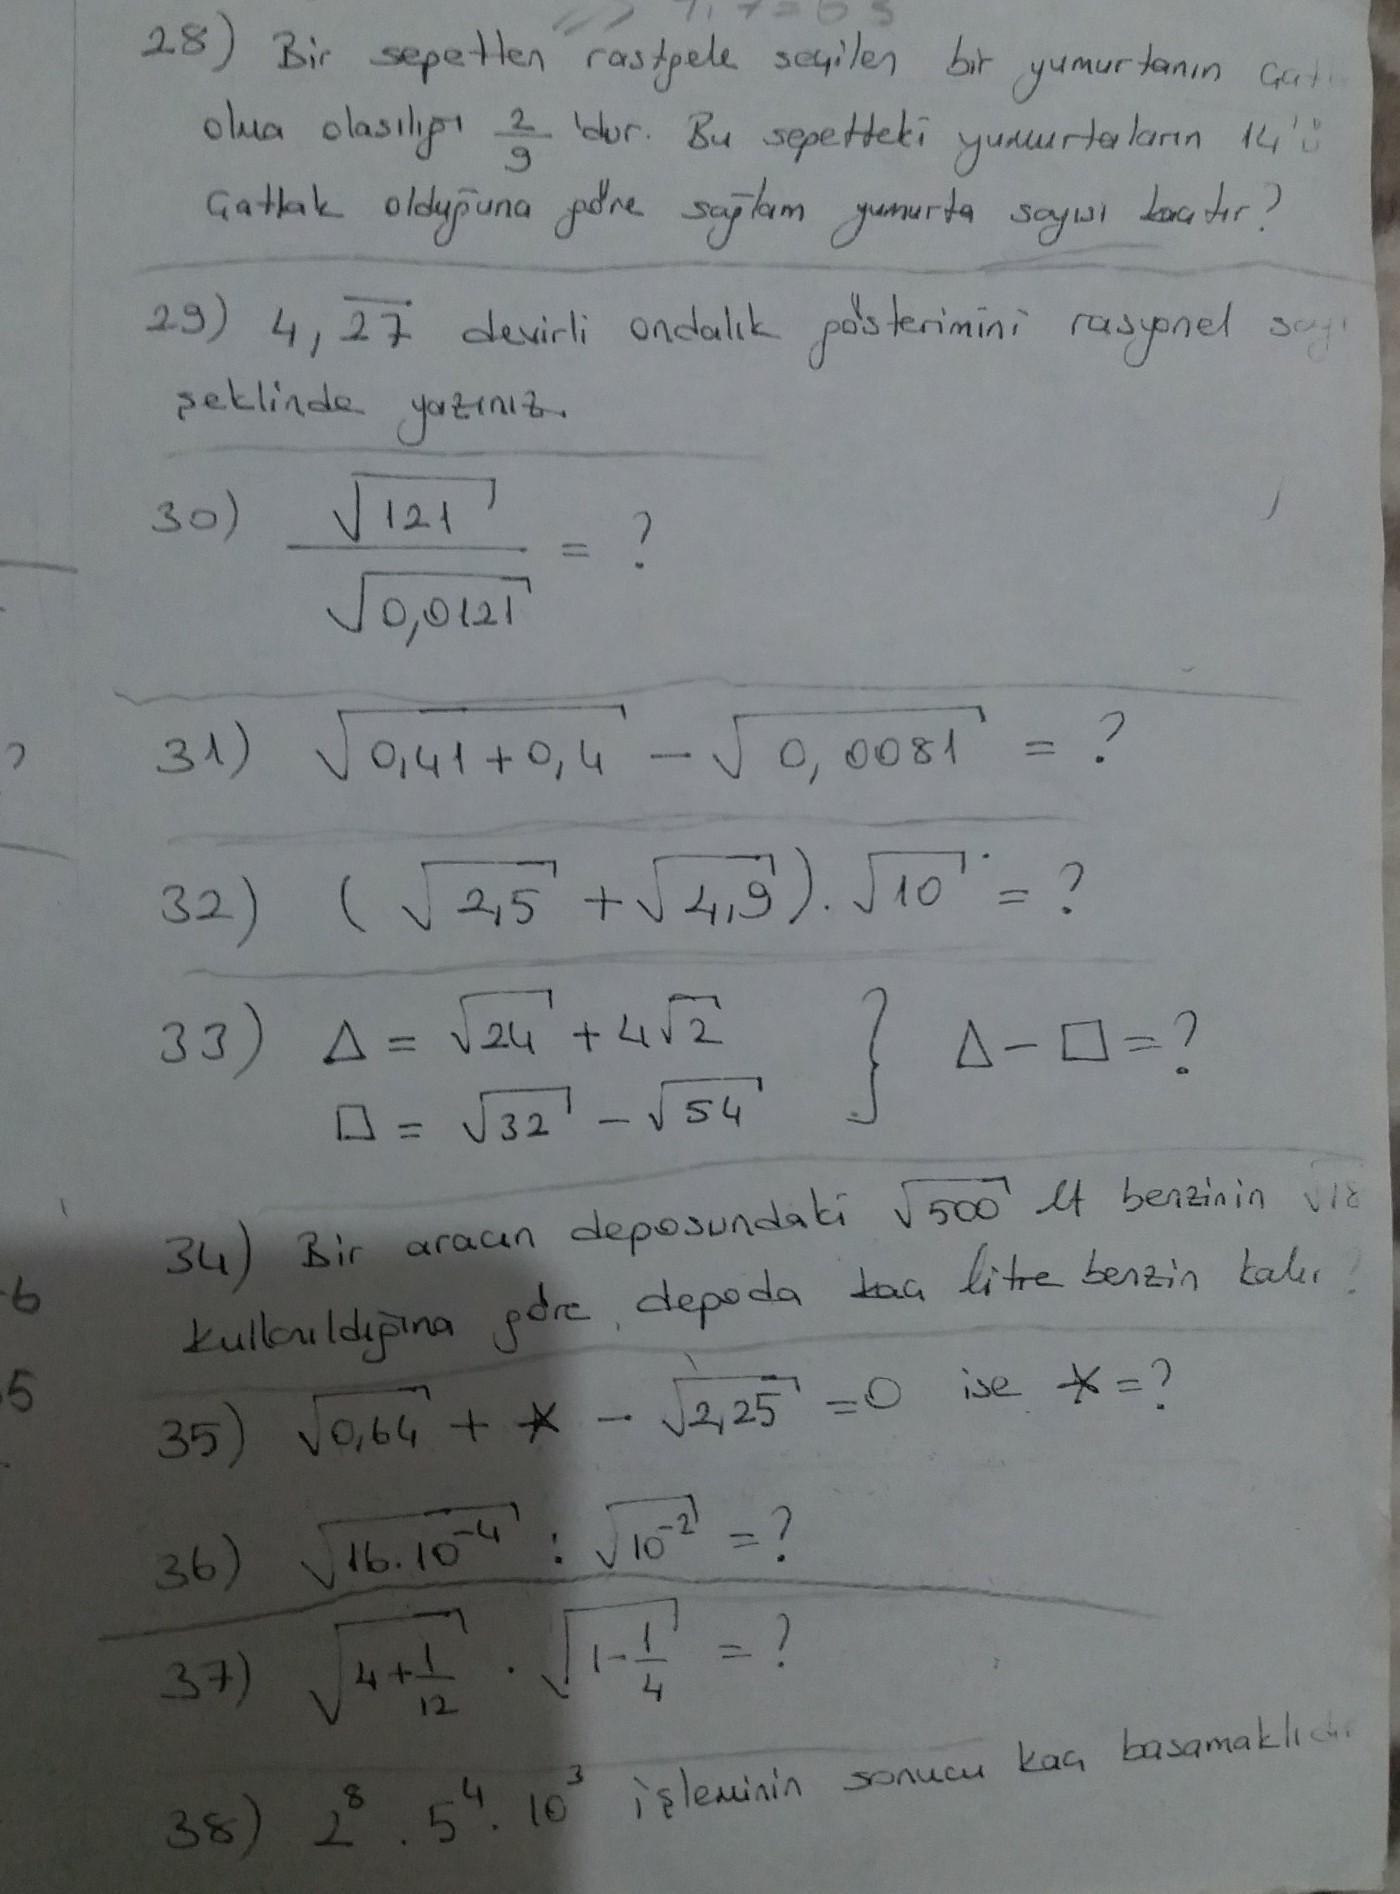 28) Bir sepetten rastgele seçilen bir yumurtanın
olma olasılığı 2/9 'dur. Bu sepetteki yumurtaların 14'ü
çatlak olduğuna göre sağlam yumurta sayısı kaçtır?
29) 4,2̅7̅ devirli ondalık gösterimini rasyonel sayı
şeklinde yazınız.
30) √121 / √0,0121 = ?
31) √(0,41+0,4) - √0,0081 = ?
32) (√2,5 + √4,9).√10 = ?
33) Δ = √24 + 4√2 } Δ - □ = ?
□ = √32 - √54
34) Bir aracın deposundaki √500 lt benzinin
kullanıldığına göre, depoda kaç litre benzin kalır?
35) √0,64 + * - √2,25 = 0 ise * = ?
36) √(16.10⁻⁴) : √(10⁻²) = ?
37) √(4+1/12) . √(1-1/4) = ?
38) 2⁸ . 5⁴ . 10³ işleminin sonucu kaç basamaklıdır